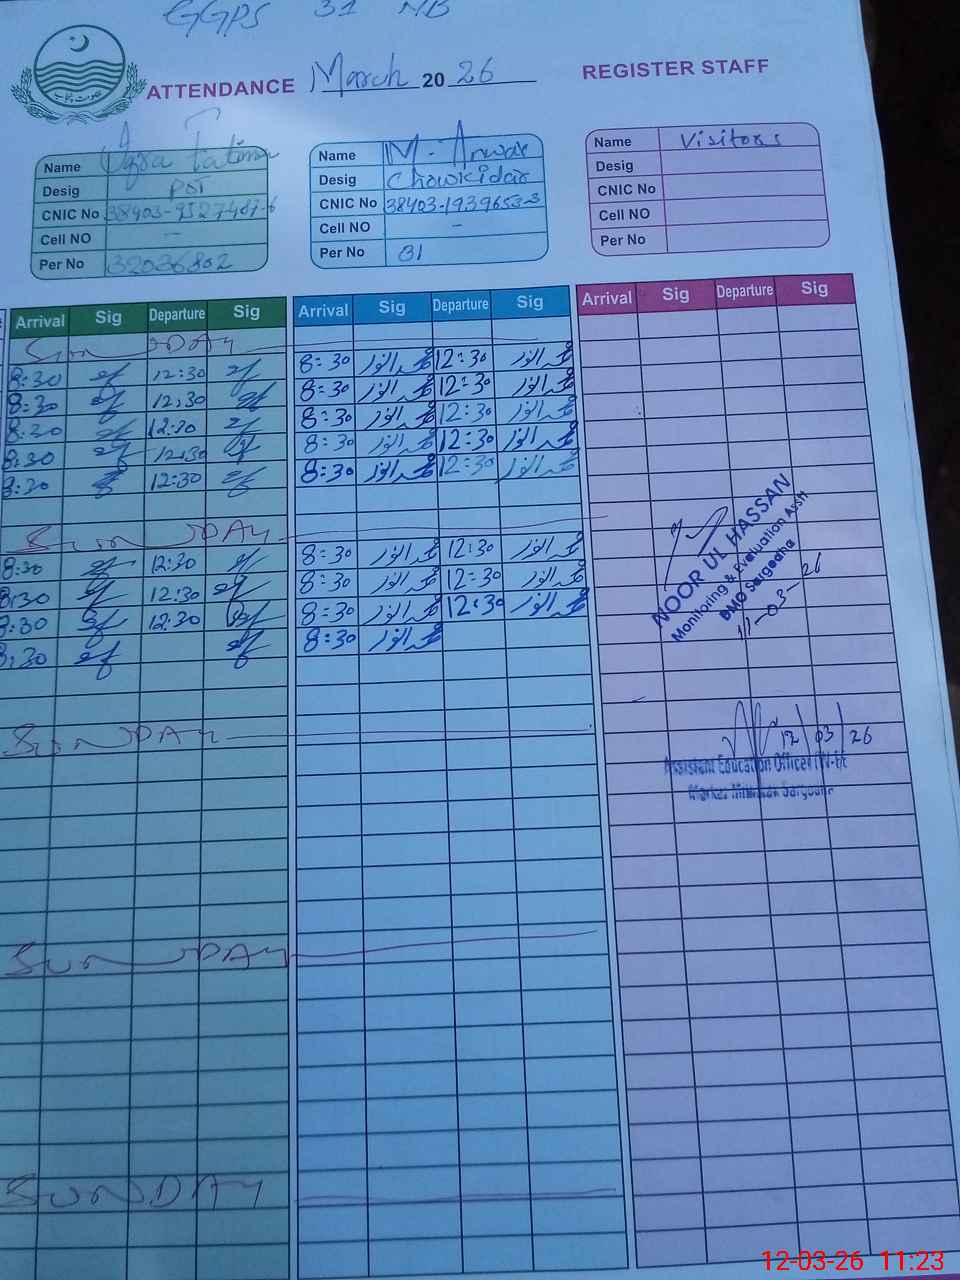 GGPS 31 NB
ATTENDANCE March 2026 REGISTER STAFF
Name Iqra Fatima
Desig PST
CNIC No
Cell NO -
Per No 32036802
Name M. Anwar
Desig Chowkidar
CNIC No 38403-1939653-3
Cell NO -
Per No 01
Name Visitors
Desig
CNIC No
Cell NO
Per No
Arrival Sig Departure Sig Arrival Sig Departure Sig Arrival Sig Departure Sig
SUNDAY
8:30 12:30 8:30 محمد انور 12:30 محمد انور
8:30 12:30 8:30 محمد انور 12:30 محمد انور
8:30 12:30 8:30 محمد انور 12:30 محمد انور
8:30 12:30 8:30 محمد انور 12:30 محمد انور
8:30 12:30 8:30 محمد انور 12:30 محمد انور
SUNDAY
8:30 12:30 8:30 محمد انور 12:30 محمد انور
8:30 12:30 8:30 محمد انور 12:30 محمد انور
8:30 12:30 8:30 محمد انور 12:30 محمد انور
8:30 8:30 محمد انور
NOOR UL HASSAN
Monitoring & Evaluation Asstt
DMO Sargodha
11-03-26
SUNDAY
12/03/26
Assistant Education Officer (W-EE)
Markaz Sargodha
SUNDAY
SUNDAY
12-03-26 11:23